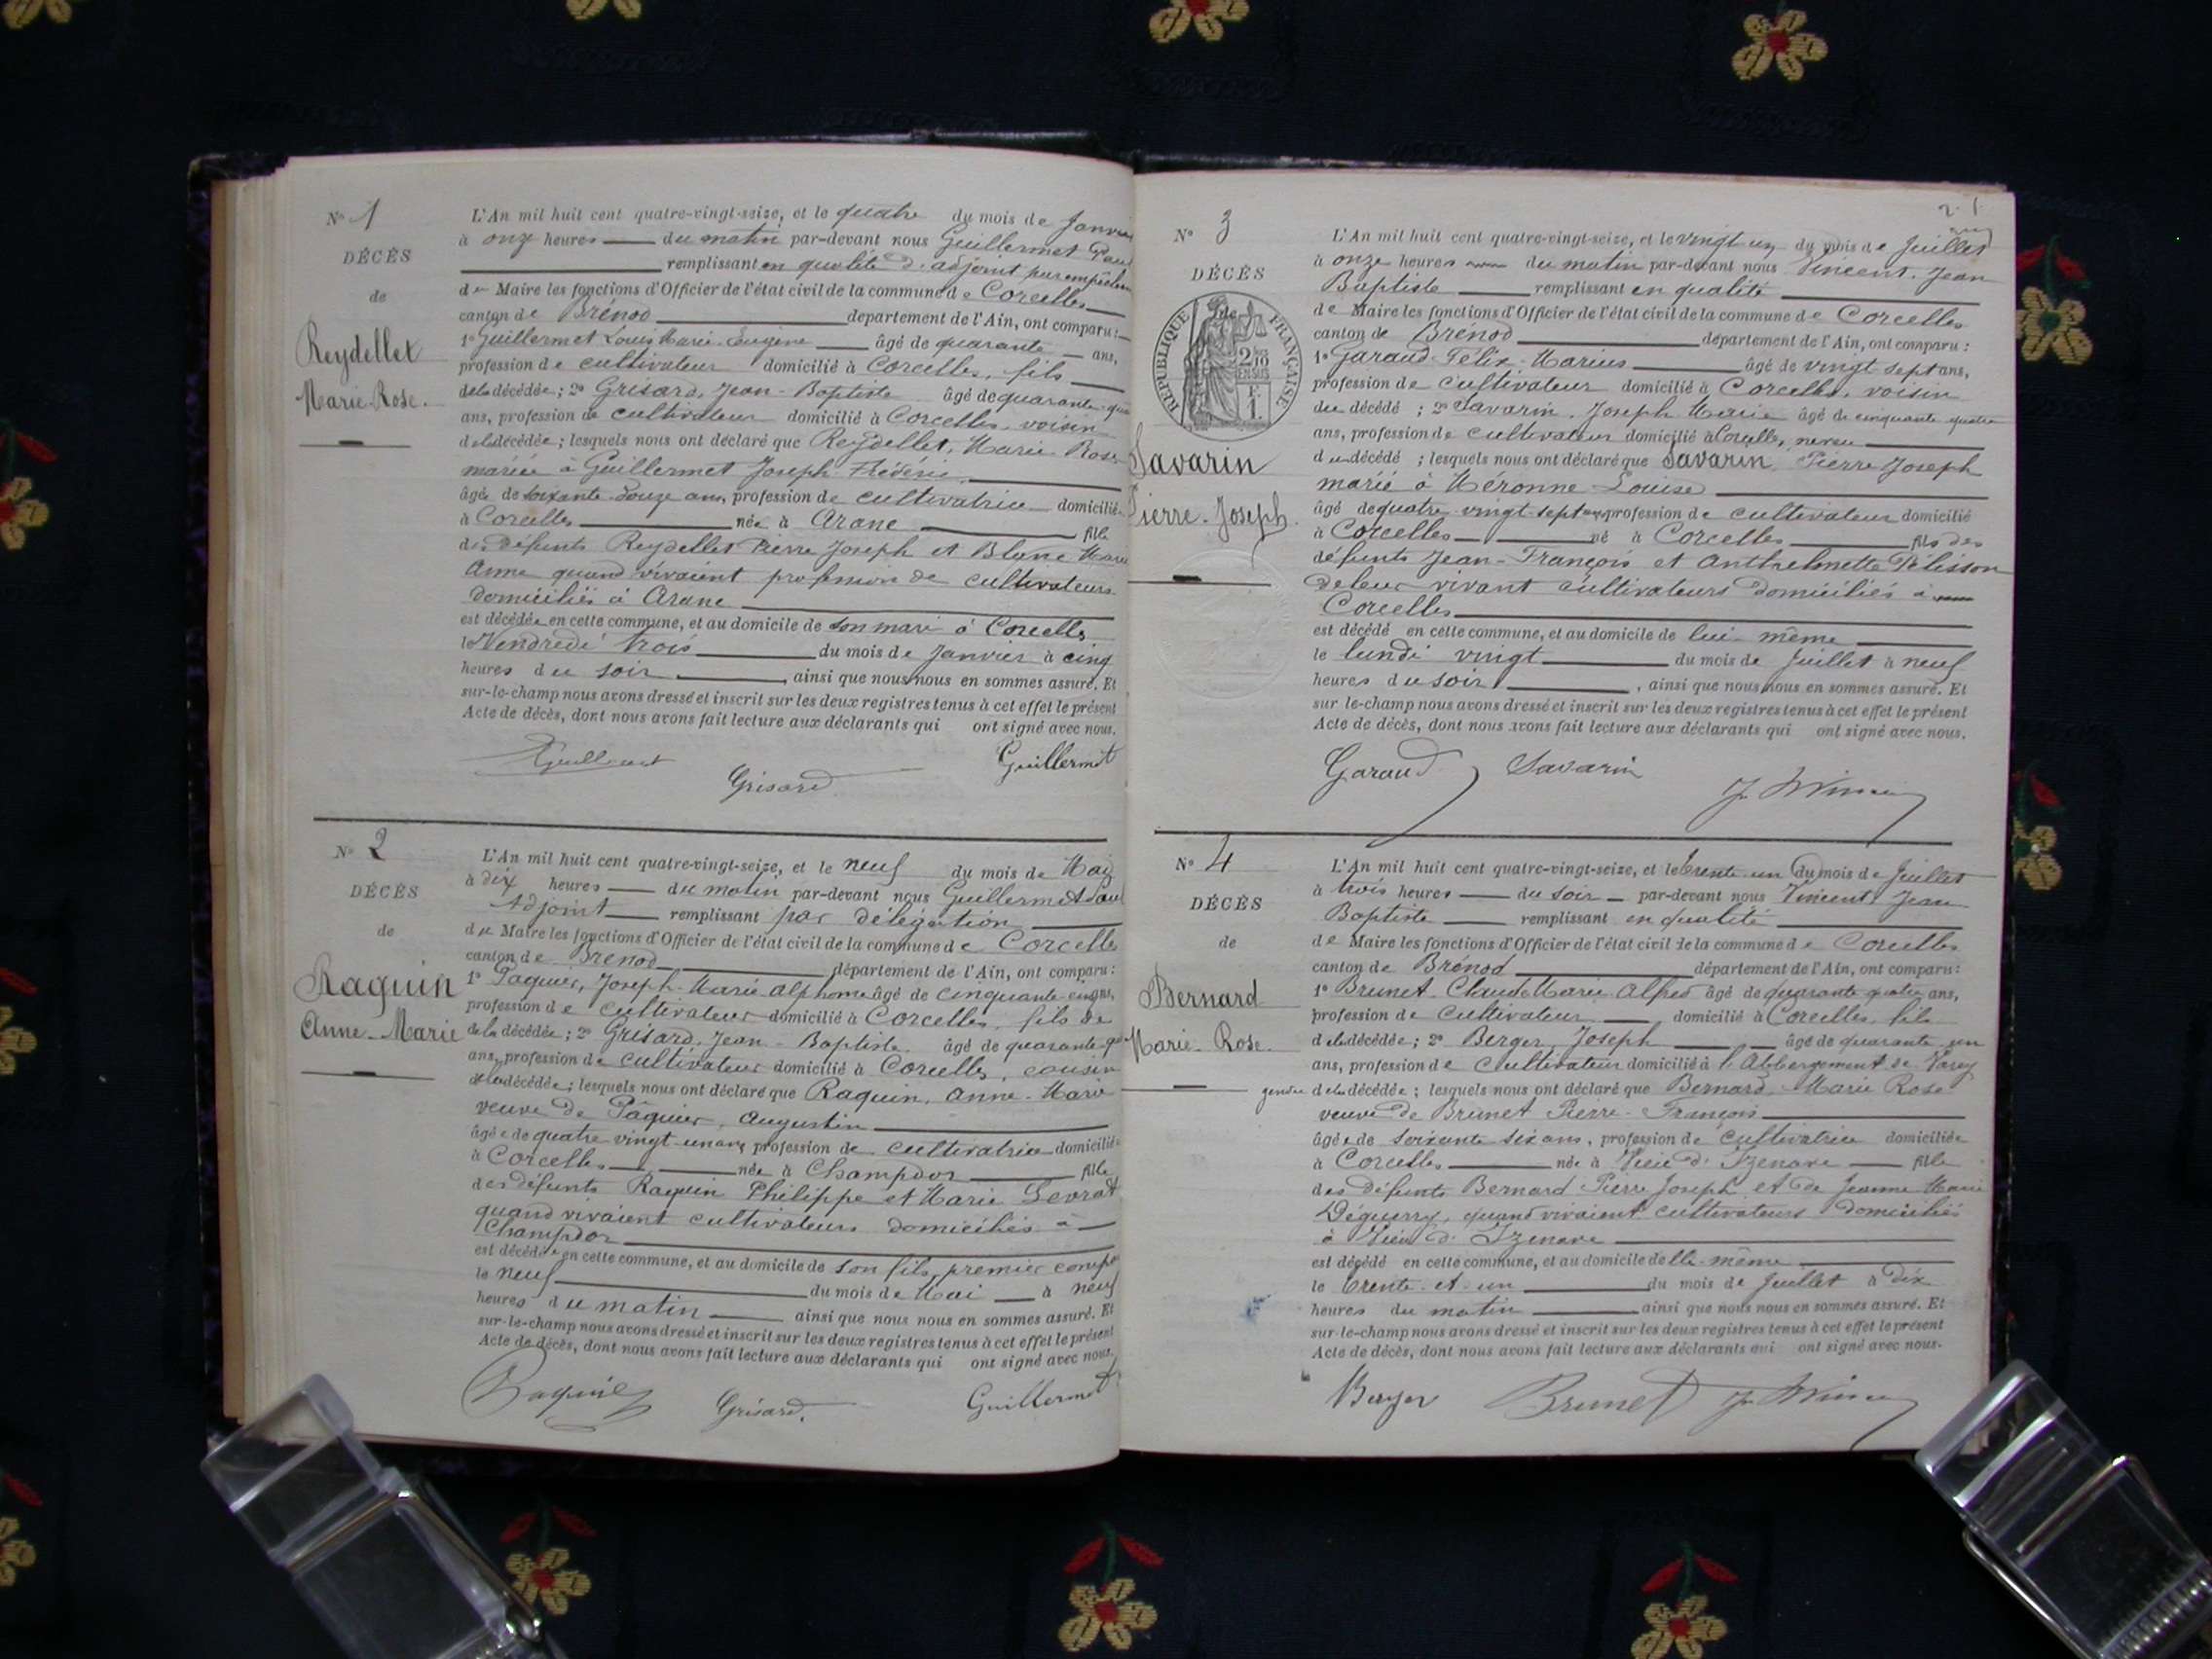 N° 1
DÉCÈS
de
Reydellet
Marie-Rose.
L'An mil huit cent quatre-vingt-seize, et le quatre du mois de Janvier
à onze heures du matin par-devant nous Guillermet Paul
remplissant en qualité d'adjoint par
du Maire les fonctions d'Officier de l'état civil de la commune de Corcelles
canton de Brénod département de l'Ain, ont comparu :
1° Guillermet Louis Marie Eugène âgé de quarante ans,
profession de cultivateur domicilié à Corcelles, fils
de la décédée ; 2° Grisard, Jean-Baptiste âgé de quarante
ans, profession de cultivateur domicilié à Corcelles, voisin
de la décédée ; lesquels nous ont déclaré que Reydellet, Marie Rose
mariée à Guillermet Joseph Frédéric
âgée de soixante-douze ans, profession de cultivatrice domiciliée
à Corcelles née à Arane fille
des défunts Reydellet Pierre Joseph et Blanc Marie
Anne quand vivaient profession de cultivateurs
domiciliés à Arane
est décédée en cette commune, et au domicile de son mari à Corcelles
le Vendredi trois du mois de Janvier à cinq
heures du soir, ainsi que nous nous en sommes assuré. Et
sur-le-champ nous avons dressé et inscrit sur les deux registres tenus à cet effet le présent
Acte de décès, dont nous avons fait lecture aux déclarants qui ont signé avec nous.
Guillermet Grisard Guillermet
N° 2
DÉCÈS
de
Raquin
Anne-Marie
L'An mil huit cent quatre-vingt-seize, et le neuf du mois de Mai
à dix heures du matin par-devant nous Guillermet Paul
Adjoint remplissant par délégation
du Maire les fonctions d'Officier de l'état civil de la commune de Corcelles
canton de Brenod département de l'Ain, ont comparu :
1° Paquier, Joseph-Marie-Alphonse âgé de cinquante-cinq ans,
profession de cultivateur domicilié à Corcelles, fils de
de la décédée ; 2° Grisard, Jean-Baptiste âgé de quarante
ans, profession de cultivateur domicilié à Corcelles, cousin
de la décédée ; lesquels nous ont déclaré que Raquin, Anne-Marie
veuve de Pâquier, Augustin
âgée de quatre vingt-un ans, profession de cultivatrice domiciliée
à Corcelles née à Champdor fille
des défunts Raquin Philippe et Marie Levrat
quand vivaient cultivateurs domiciliés à
Champdor
est décédée en cette commune, et au domicile de son fils, premier comp
le neuf du mois de Mai à neuf
heures du matin ainsi que nous nous en sommes assuré. Et
sur-le-champ nous avons dressé et inscrit sur les deux registres tenus à cet effet le présent
Acte de décès, dont nous avons fait lecture aux déclarants qui ont signé avec nous.
Paquier Grisard. Guillermet
N° 3
DÉCÈS
de
RÉPUBLIQUE FRANÇAISE
2/10 EN SUS
Savarin
Pierre-Joseph.
L'An mil huit cent quatre-vingt-seize, et le vingt un du mois de Juillet
à onze heures du matin par-devant nous Vincent, Jean
Baptiste remplissant en qualité
de Maire les fonctions d'Officier de l'état civil de la commune de Corcelles
canton de Brénod département de l'Ain, ont comparu :
1° Garaud-Félix-Marius âgé de vingt sept ans,
profession de cultivateur domicilié à Corcelles, voisin
du décédé ; 2° Savarin, Joseph Marie âgé de cinquante quatre
ans, profession de cultivateur domicilié à Corcelles, neveu
du décédé ; lesquels nous ont déclaré que Savarin, Pierre Joseph
marié à Meronne Louise
âgé de quatre-vingt-sept ans, profession de cultivateur domicilié
à Corcelles né à Corcelles fils des
défunts Jean-François et Anthelmette Pélisson
de leur vivant cultivateurs domiciliés à
Corcelles
est décédé en cette commune, et au domicile de lui-même
le lundi vingt du mois de Juillet à neuf
heures du soir, ainsi que nous nous en sommes assuré. Et
sur le-champ nous avons dressé et inscrit sur les deux registres tenus à cet effet le présent
Acte de décès, dont nous avons fait lecture aux déclarants qui ont signé avec nous.
Garaud Savarin
N° 4
DÉCÈS
de
Bernard
Marie-Rose.
L'An mil huit cent quatre-vingt-seize, et le trente-un du mois de Juillet
à trois heures du soir par-devant nous Vincent Jean
Baptiste remplissant en qualité
de Maire les fonctions d'Officier de l'état civil de la commune de Corcelles
canton de Brénod département de l'Ain, ont comparu :
1° Brunet Claude Marie Alfred âgé de quarante quatre ans,
profession de cultivateur domicilié à Corcelles, fils
de la décédée ; 2° Berger, Joseph âgé de quarante un
ans, profession de cultivateur domicilié à l'Abbergement de Varey
gendre de la décédée ; lesquels nous ont déclaré que Bernard-Marie Rose
veuve de Brunet Pierre-François
âgée de soixante six ans, profession de cultivatrice domiciliée
à Corcelles née à Vieu d'Izenave fille
des défunts Bernard Pierre Joseph et de Jeanne Marie
Déguerry, quand vivaient cultivateurs domiciliés
à Vieu d'Izenave
est décédé en cette commune, et au domicile d'elle-même
le trente-et-un du mois de Juillet à dix
heures du matin ainsi que nous nous en sommes assuré. Et
sur-le-champ nous avons dressé et inscrit sur les deux registres tenus à cet effet le présent
Acte de décès, dont nous avons fait lecture aux déclarants qui ont signé avec nous.
Berger Brunet